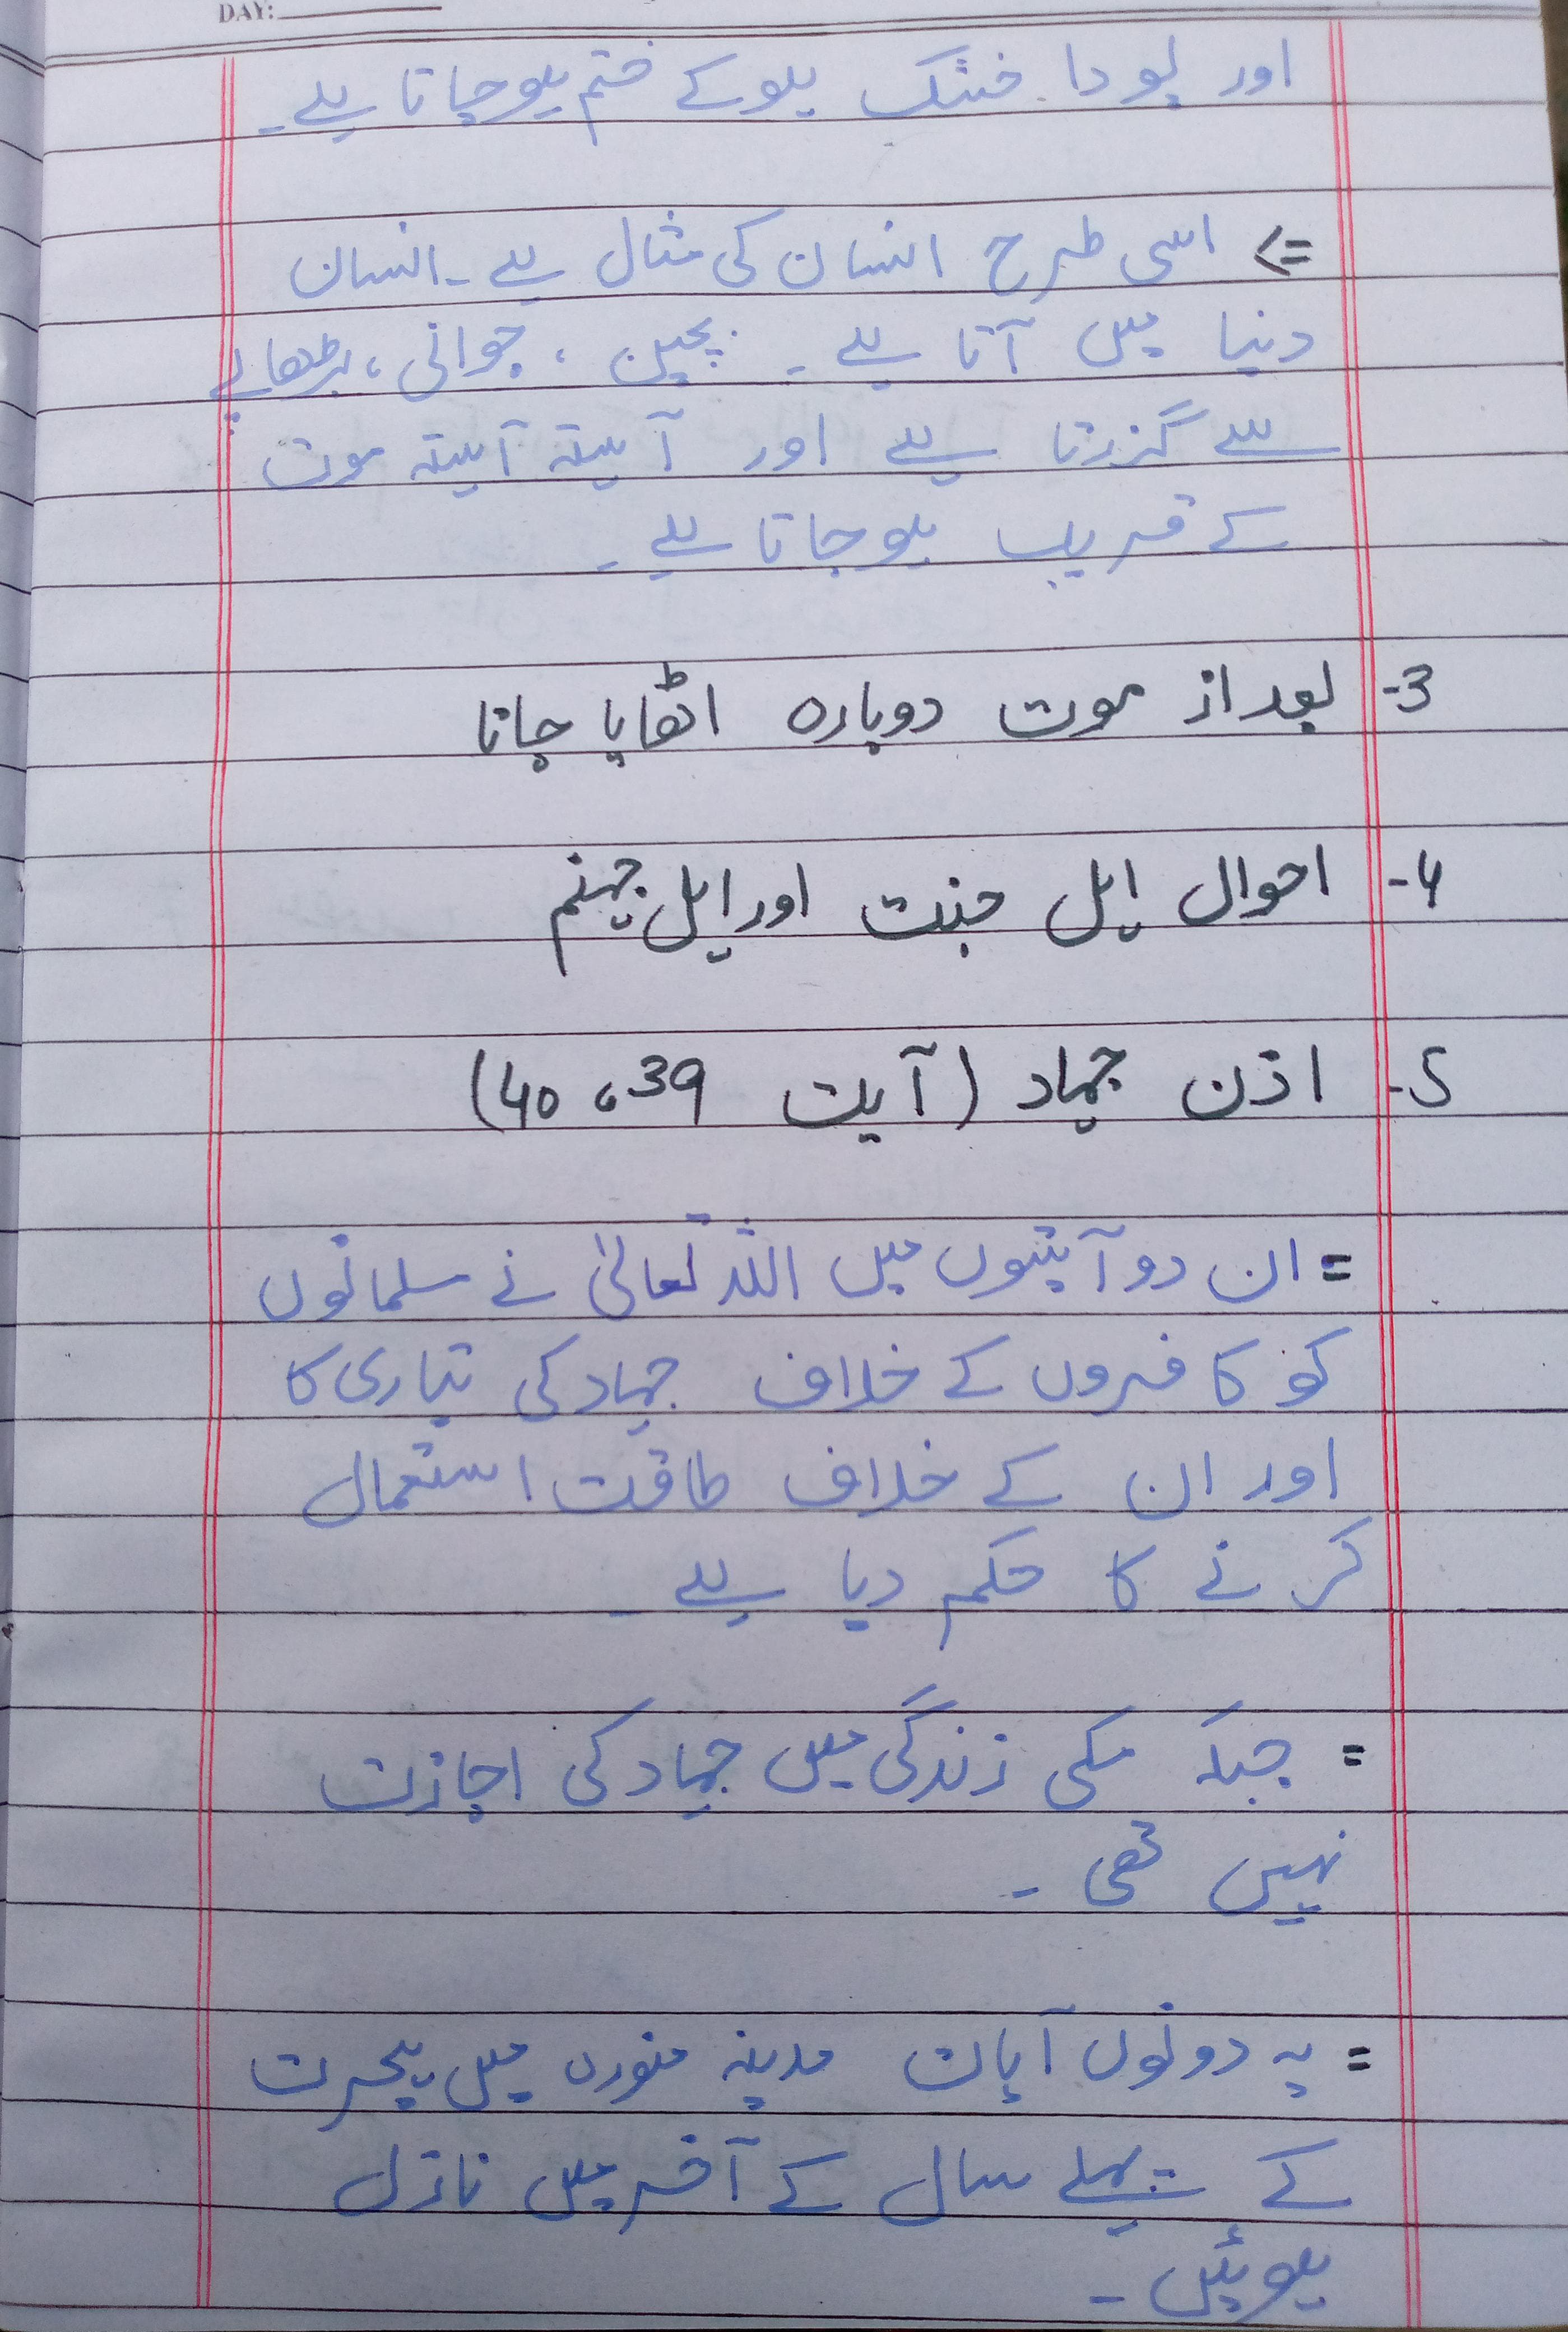 DAY:
اور پودا خشک ہو کے ختم ہو جاتا ہے۔
=> اسی طرح انسان کی مثال ہے۔ انسان
دنیا میں آتا ہے۔ بچپن، جوانی، بڑھاپے
سے گزرتا ہے اور آہستہ آہستہ موت
کے قریب ہو جاتا ہے۔
3- بعد از موت دوبارہ اٹھایا جانا
4- احوال اہل جنت اور اہل جہنم
5- اذن جہاد (آیت 39، 40)
= ان دو آیتوں میں اللہ تعالیٰ نے مسلمانوں
کو کافروں کے خلاف جہاد کی تیاری کا
اور ان کے خلاف طاقت استعمال
کرنے کا حکم دیا ہے۔
= جبکہ مکی زندگی میں جہاد کی اجازت
نہیں تھی۔
= یہ دونوں آیات مدینہ منورہ میں ہجرت
کے پہلے سال کے آخر میں نازل
ہوئیں۔